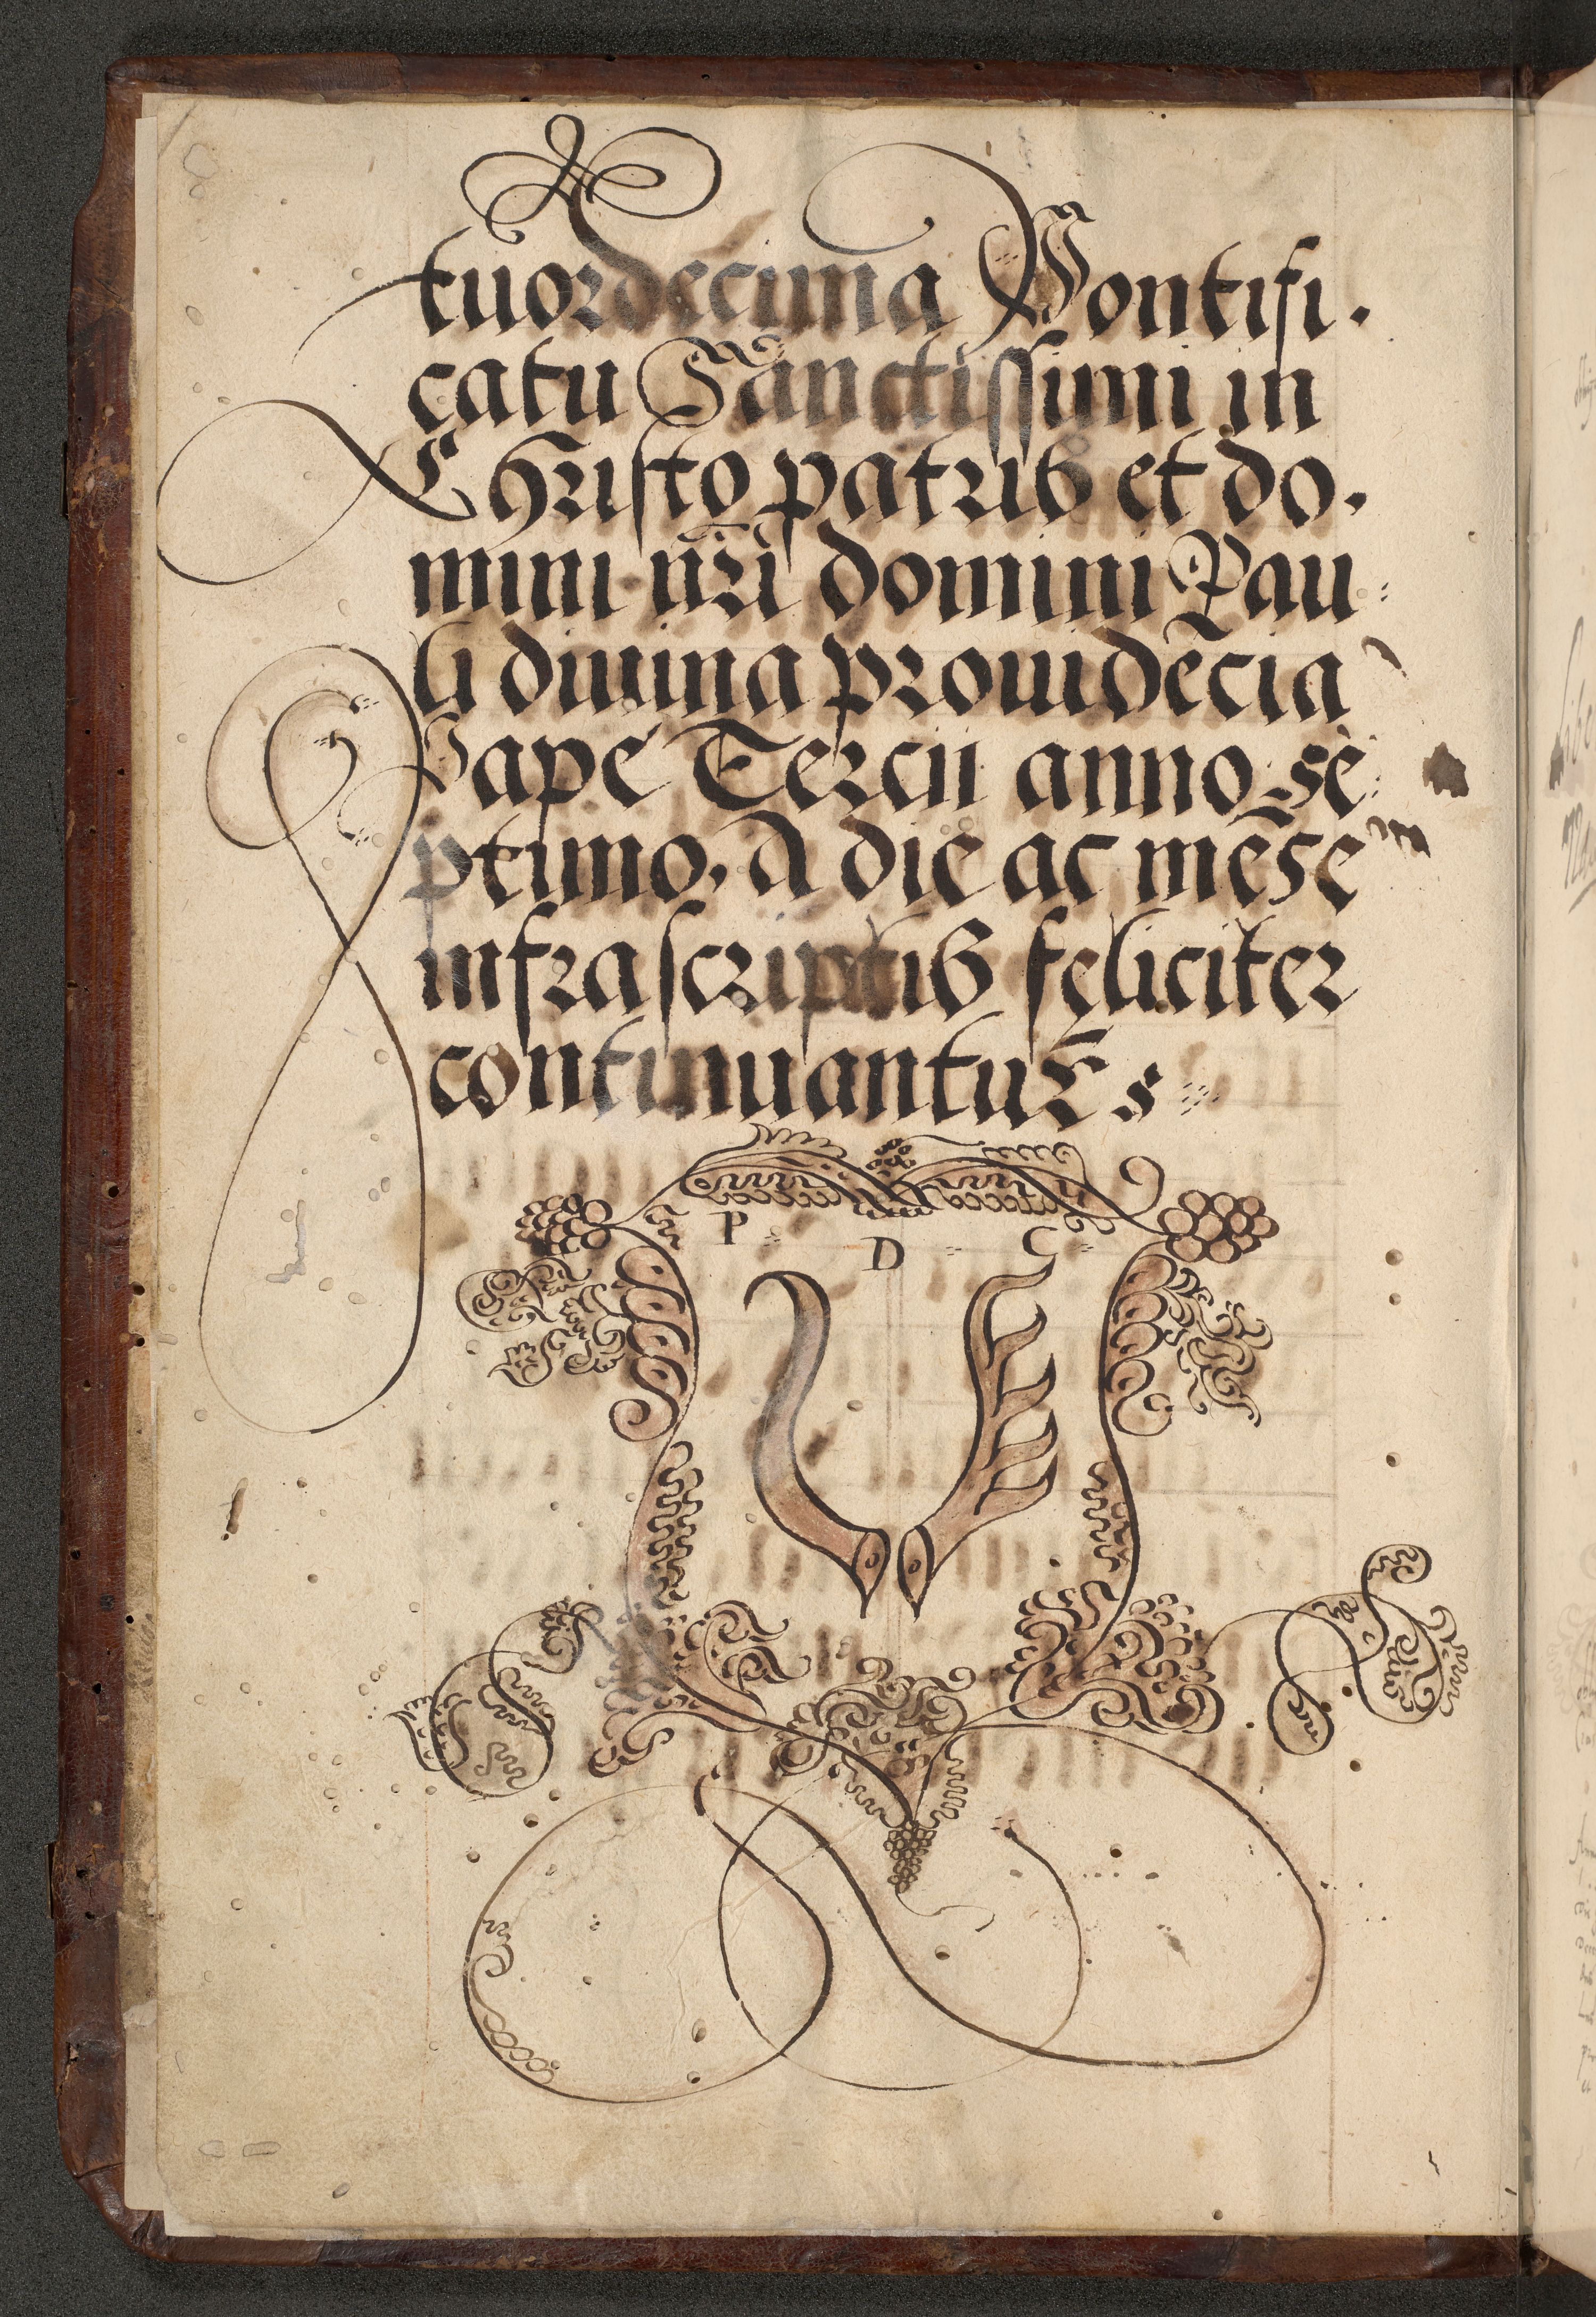 tuordecima Pontifi.
catu Sanctissimi in
Christo patris et do.
mini nr̄i domini Pau:
li diuina prouidēcia
Pape Tercii anno se
ptimo. A die ac mēse
infrascriptis feliciter
continuantur s
P D C